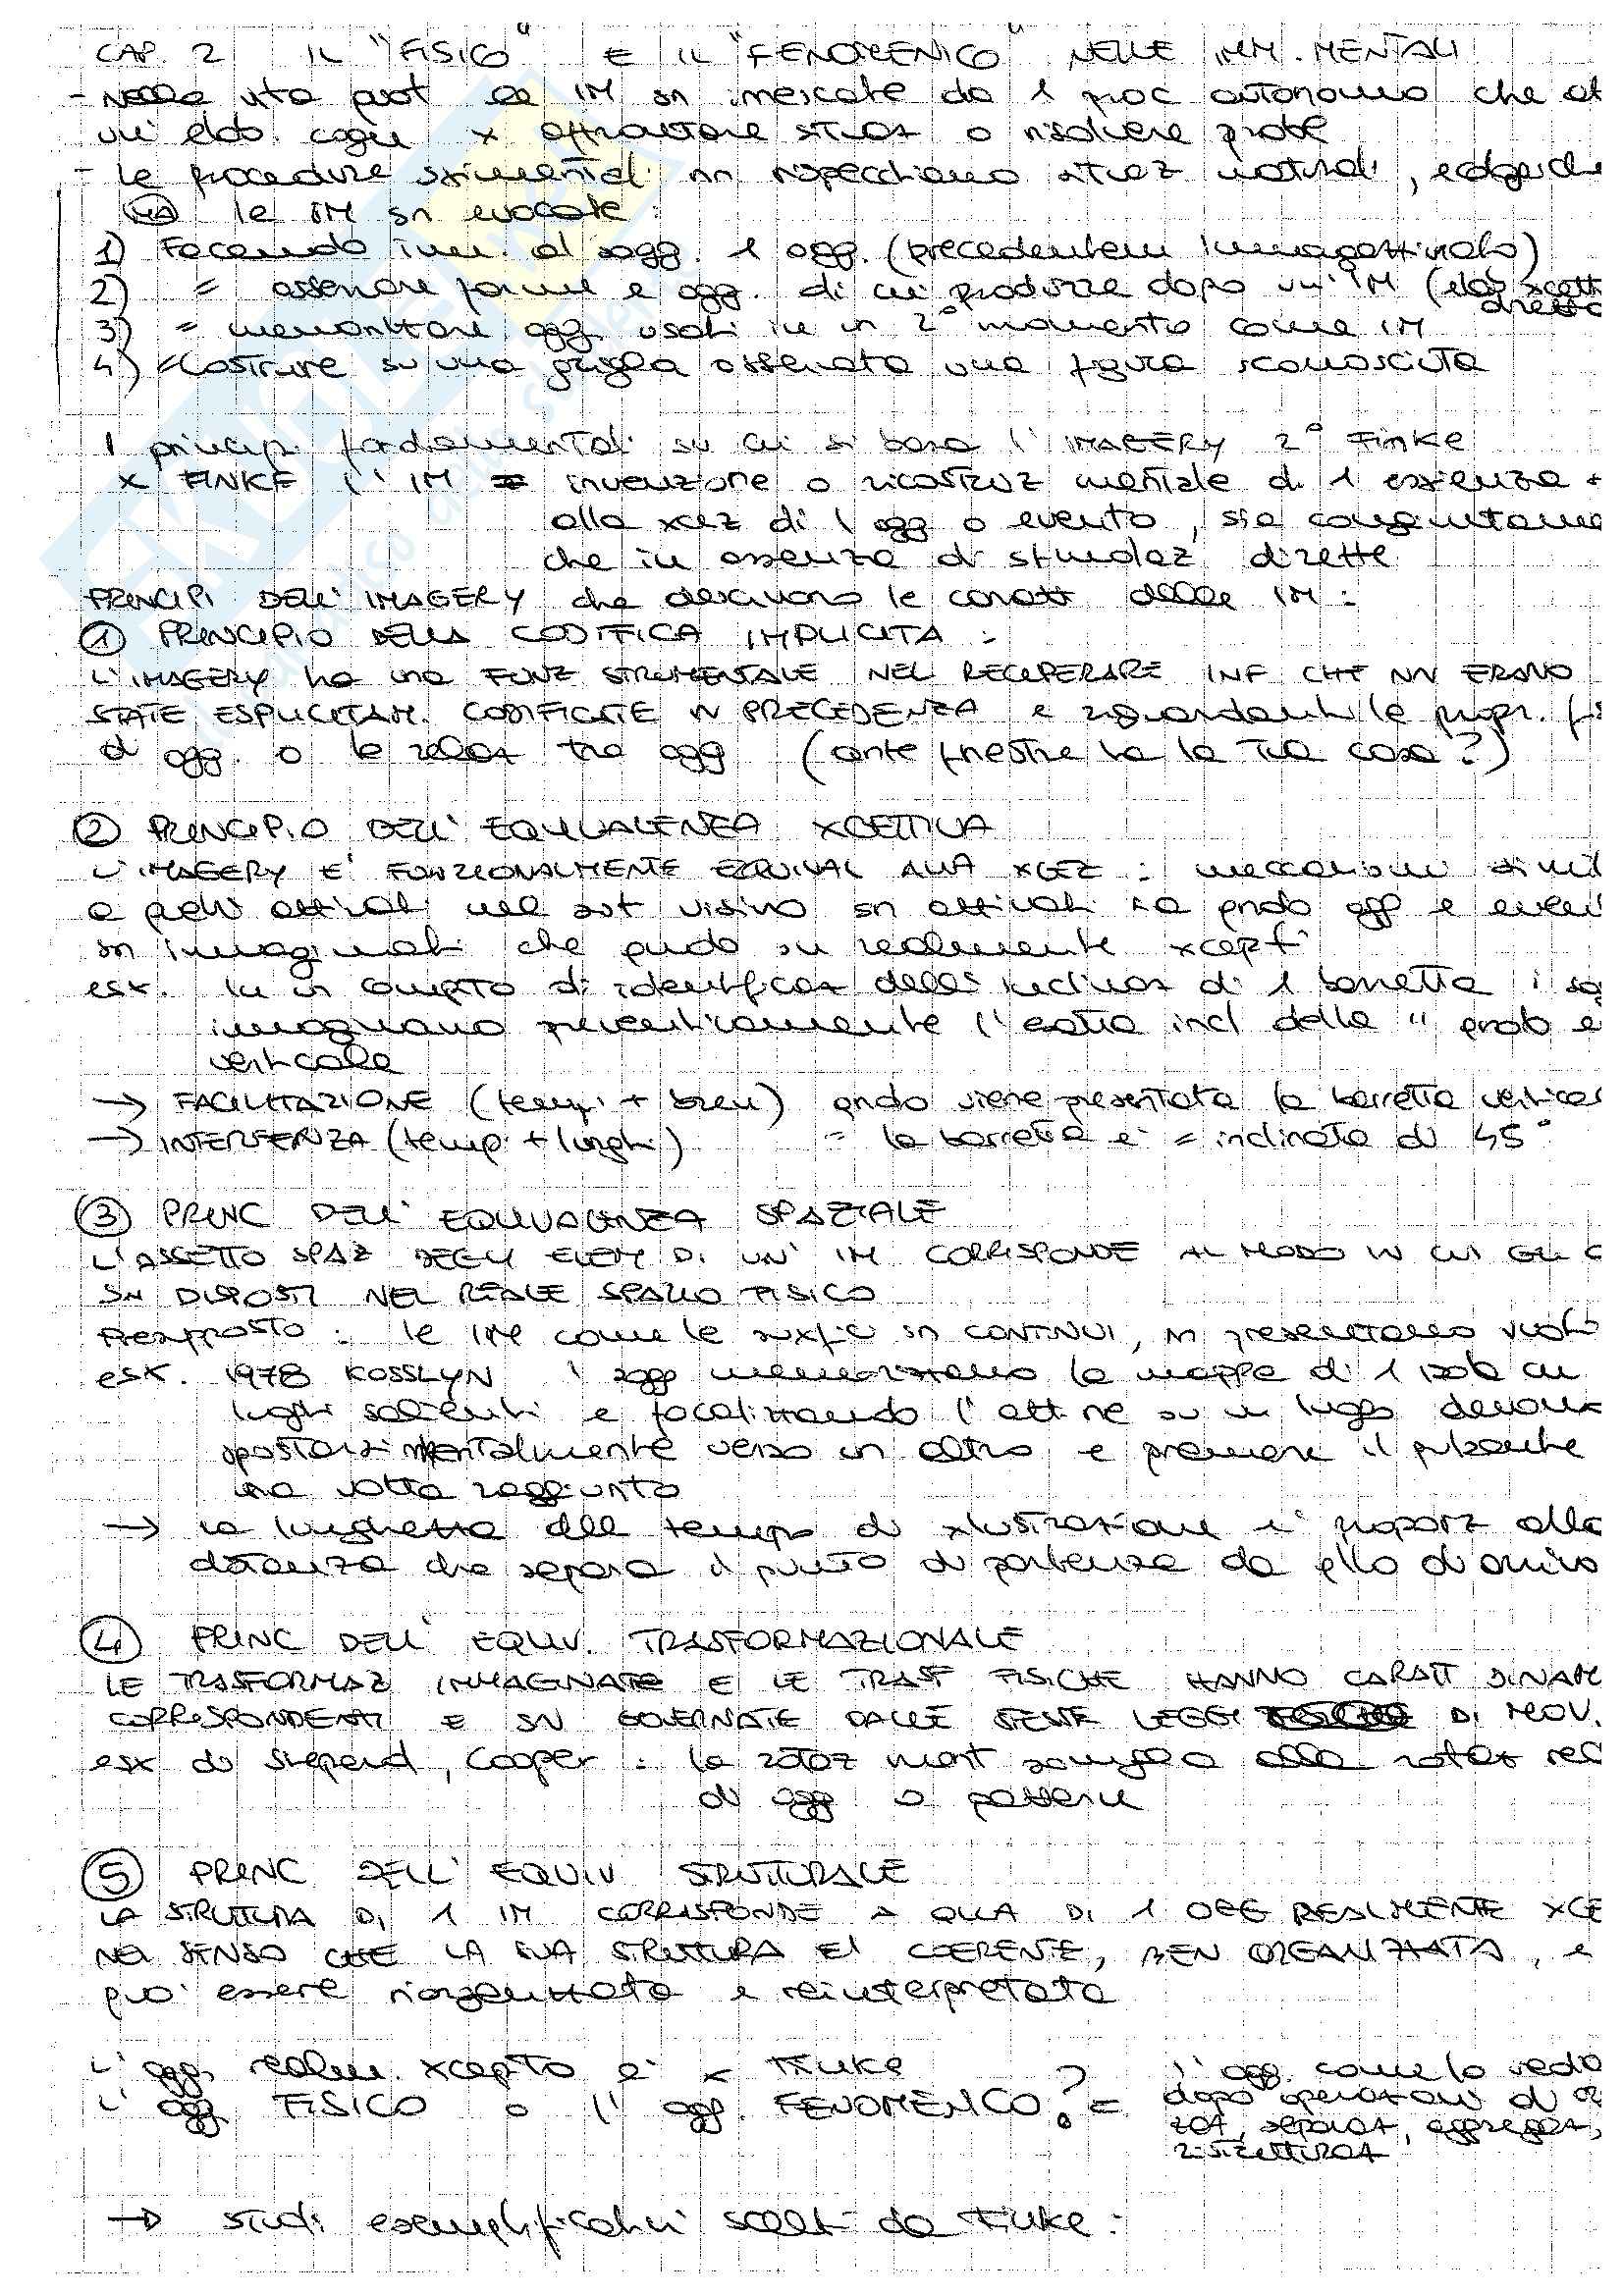 CAP. 2 IL "FISICO" E IL "FENOMENICO" NELLE IMM. MENTALI
- Nella vita quot le IM sn innescate da 1 proc autonomo che
un' elab. cogn x affrontare situaz o risolvere probl
- Le procedure sperimentali nn rispecchiano situaz naturali, ecologiche
(MA) le IM sn evocate:
1) Facendo imm. al sogg. 1 ogg. (precedentem immagazzinato)
2) = osservare forme e ogg. di cui produrre dopo un' IM (elab xcett
diretta
3) = memorizzare ogg. usati in un 2° momento come IM
4) = costruire su una griglia osservata una figura sconosciuta
I principi fondamentali su cui si basa l'IMAGERY 2° Finke
x FINKE l' IM = invenzione o ricostruz mentale di 1 esxienza +
alla xcez di 1 ogg o evento, sia congiuntame
che in assenza di stimolaz dirette
PRINCIPI DELL' IMAGERY che descrivono le caratt delle IM:
① PRINCIPIO DELLA CODIFICA IMPLICITA:
L'IMAGERY ha una FUNZ STRUMENTALE NEL RECUPERARE INF CHE NN ERANO
STATE ESPLICITAM. CODIFICATE IN PRECEDENZA e riguardanti le propr. fi
di ogg. o le relaz tra ogg (qnte finestre ha la tua casa?)
② PRINCIPIO DELL' EQUIVALENZA XCETTIVA
L'IMAGERY E' FUNZIONALMENTE EQUIVAL ALLA XCEZ: meccanismi simil
a quelli attivati nel sist visivo sn attivati sia qndo ogg e even
sn immaginati che qndo sn realmente xcepiti
esx. In un compito di identificaz dell' inclinaz di 1 barretta i sog
immaginano preventivamente l'esatta incl della " prob e
verticale
→ FACILITAZIONE (tempi + brevi) qndo viene presentata la barretta vertica
→ INTERFERENZA (tempi + lunghi) = la barretta e' = inclinata di 45°
③ PRINC DELL' EQUIVALENZA SPAZIALE
L'ASSETTO SPAZ DEGLI ELEM DI UN' IM CORRISPONDE AL MODO IN CUI GLI
SN DISPOSTI NEL REALE SPAZIO FISICO
Presupposto: le IM come le suxfici sn CONTINUI, nn presentano vuoti
esx. 1978 KOSSLYN i sogg memorizzano la mappa di 1 isola cn
luoghi salienti e focalizzando l'att.ne su un luogo devono
spostarsi mentalmente verso un altro e premere il pulsante
una volta raggiunto
→ la lunghezza del tempo di xlustrazione e' proporz alla
distanza che separa il punto di partenza da qllo di arrivo
④ PRINC DELL' EQUIV. TRASFORMAZIONALE
LE TRASFORMAZ IMMAGINATE E LE TRASF FISICHE HANNO CARATT DINAM
CORRISPONDENTI E SN GOVERNATE DALLE STESSE LEGGI DI MOV.
esx di Shepard, Cooper: la rotaz ment somiglia alla rotaz rea
di ogg o pattern
⑤ PRINC DELL' EQUIV STRUTTURALE
LA STRUTTURA DI 1 IM CORRISPONDE A QLLA DI 1 OGG REALMENTE XCE
NEL SENSO CHE LA SUA STRUTTURA E' COERENTE, BEN ORGANIZZATA, e
puo' essere riorganizzata e reinterpretata
L' ogg. realm. xcepito e' x Finke
L' ogg. FISICO o l' ogg. FENOMENICO? =
l'ogg. come lo vedia
dopo operazioni di
separaz, aggregaz,
ristrutturaz
→ studi esemplificativi scelti da Finke: